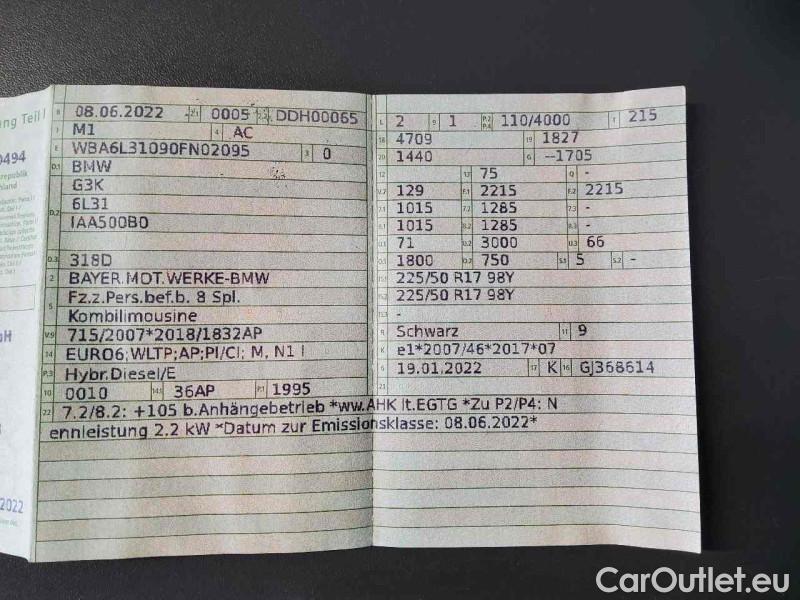 ng Teil I
0494
republik
hland
H
2022
B 08.06.2022 2.1 0005 2.2 DDH00065
J M1 4 AC
E WBA6L31090FN02095 3 0
D.1 BMW
G3K
D.2 6L31
IAA500B0
D.3 318D
2 BAYER.MOT.WERKE-BMW
5 Fz.z.Pers.bef.b. 8 Spl.
Kombilimousine
V.9 715/2007*2018/1832AP
14 EURO6;WLTP;AP;PI/CI; M, N1 I
P.3 Hybr.Diesel/E
10 0010 14.1 36AP P.1 1995
22 7.2/8.2: +105 b.Anhängebetrieb *ww.AHK lt.EGTG *Zu P2/P4: N
ennleistung 2.2 kW *Datum zur Emissionsklasse: 08.06.2022*
L 2 9 1 P.2 P.4 110/4000 T 215
18 4709 19 1827
20 1440 G --1705
12 - 13 75 Q -
V.7 129 F.1 2215 F.2 2215
7.1 1015 7.2 1285 7.3 -
8.1 1015 8.2 1285 8.3 -
U.1 71 U.2 3000 U.3 66
O.1 1800 O.2 750 S.1 5 S.2 -
15.1 225/50 R17 98Y
15.2 225/50 R17 98Y
15.3 -
R Schwarz 11 9
K e1*2007/46*2017*07
6 19.01.2022 17 K 16 GJ368614
21
CarOutlet.eu